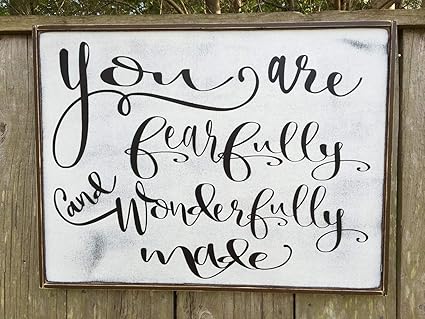 You are
fearfully
and Wonderfully
made